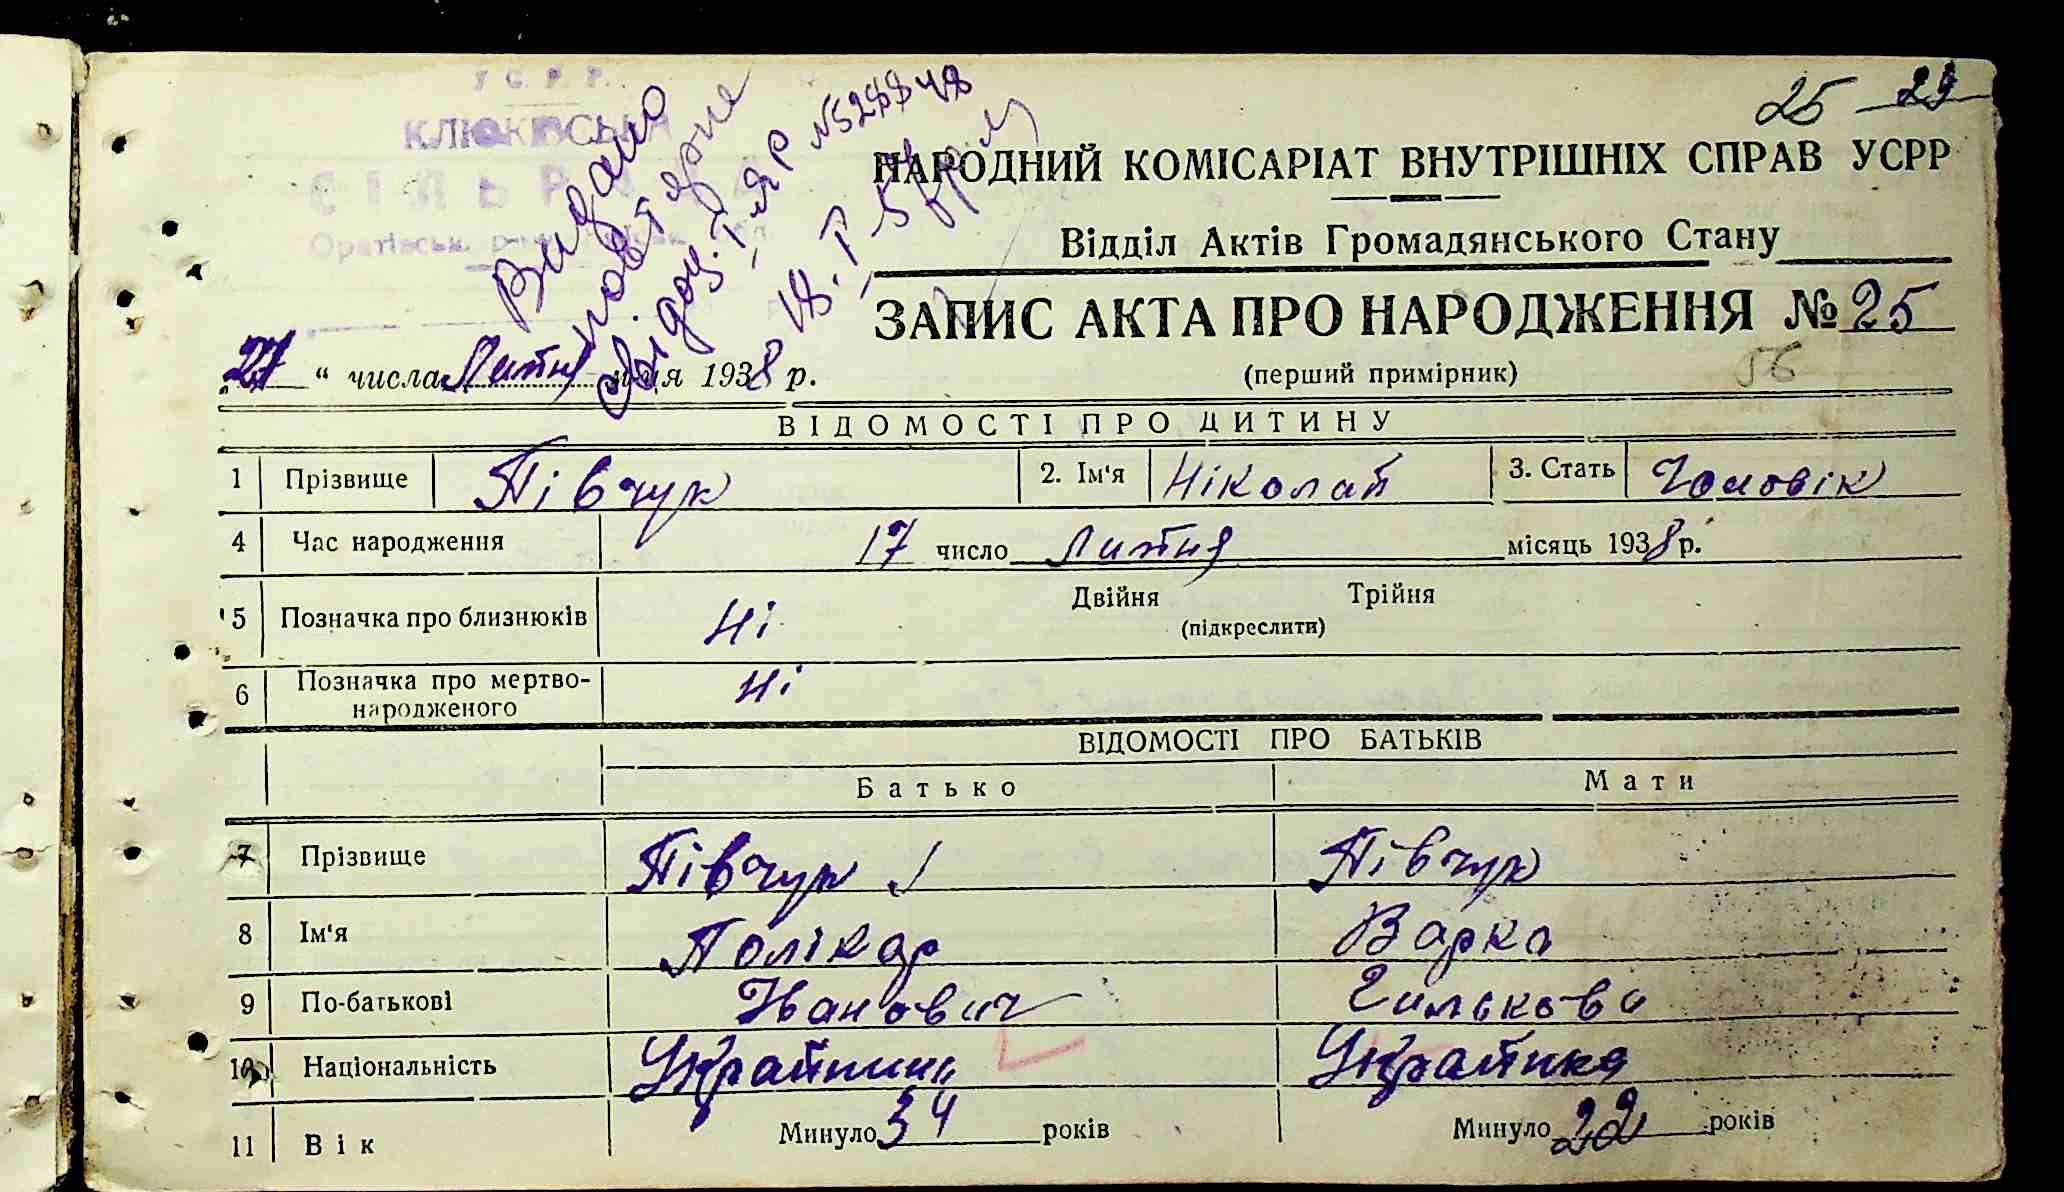 У С Р Р.
КЛЮКІВСЬКА
СІЛЬРАДА
Оратівськ.
Видано
повторне
свідоц. І ЯР №528848
18. І. 5
25 29
НАРОДНИЙ КОМІСАРІАТ ВНУТРІШНІХ СПРАВ УСРР
Відділ Актів Громадянського Стану
ЗАПИС АКТА ПРО НАРОДЖЕННЯ № 25
(перший примірник) 56
„27“ числа Лютня м-ця 1938 р.
ВІДОМОСТІ ПРО ДИТИНУ
1 Прізвище Півчук 2. Ім'я Ніколай 3. Стать Чоловік
4 Час народження 17 число Лютня місяць 1938 р.
5 Позначка про близнюків Ні Двійня Трійня
(підкреслити)
6 Позначка про мертво-
народженого Ні
ВІДОМОСТІ ПРО БАТЬКІВ
Батько Мати
7 Прізвище Півчук Півчук
8 Ім'я Полікар Варка
9 По-батькові Іванович Гилькова
10 Національність Українець Українка
11 Вік Минуло 34 років Минуло 22 років